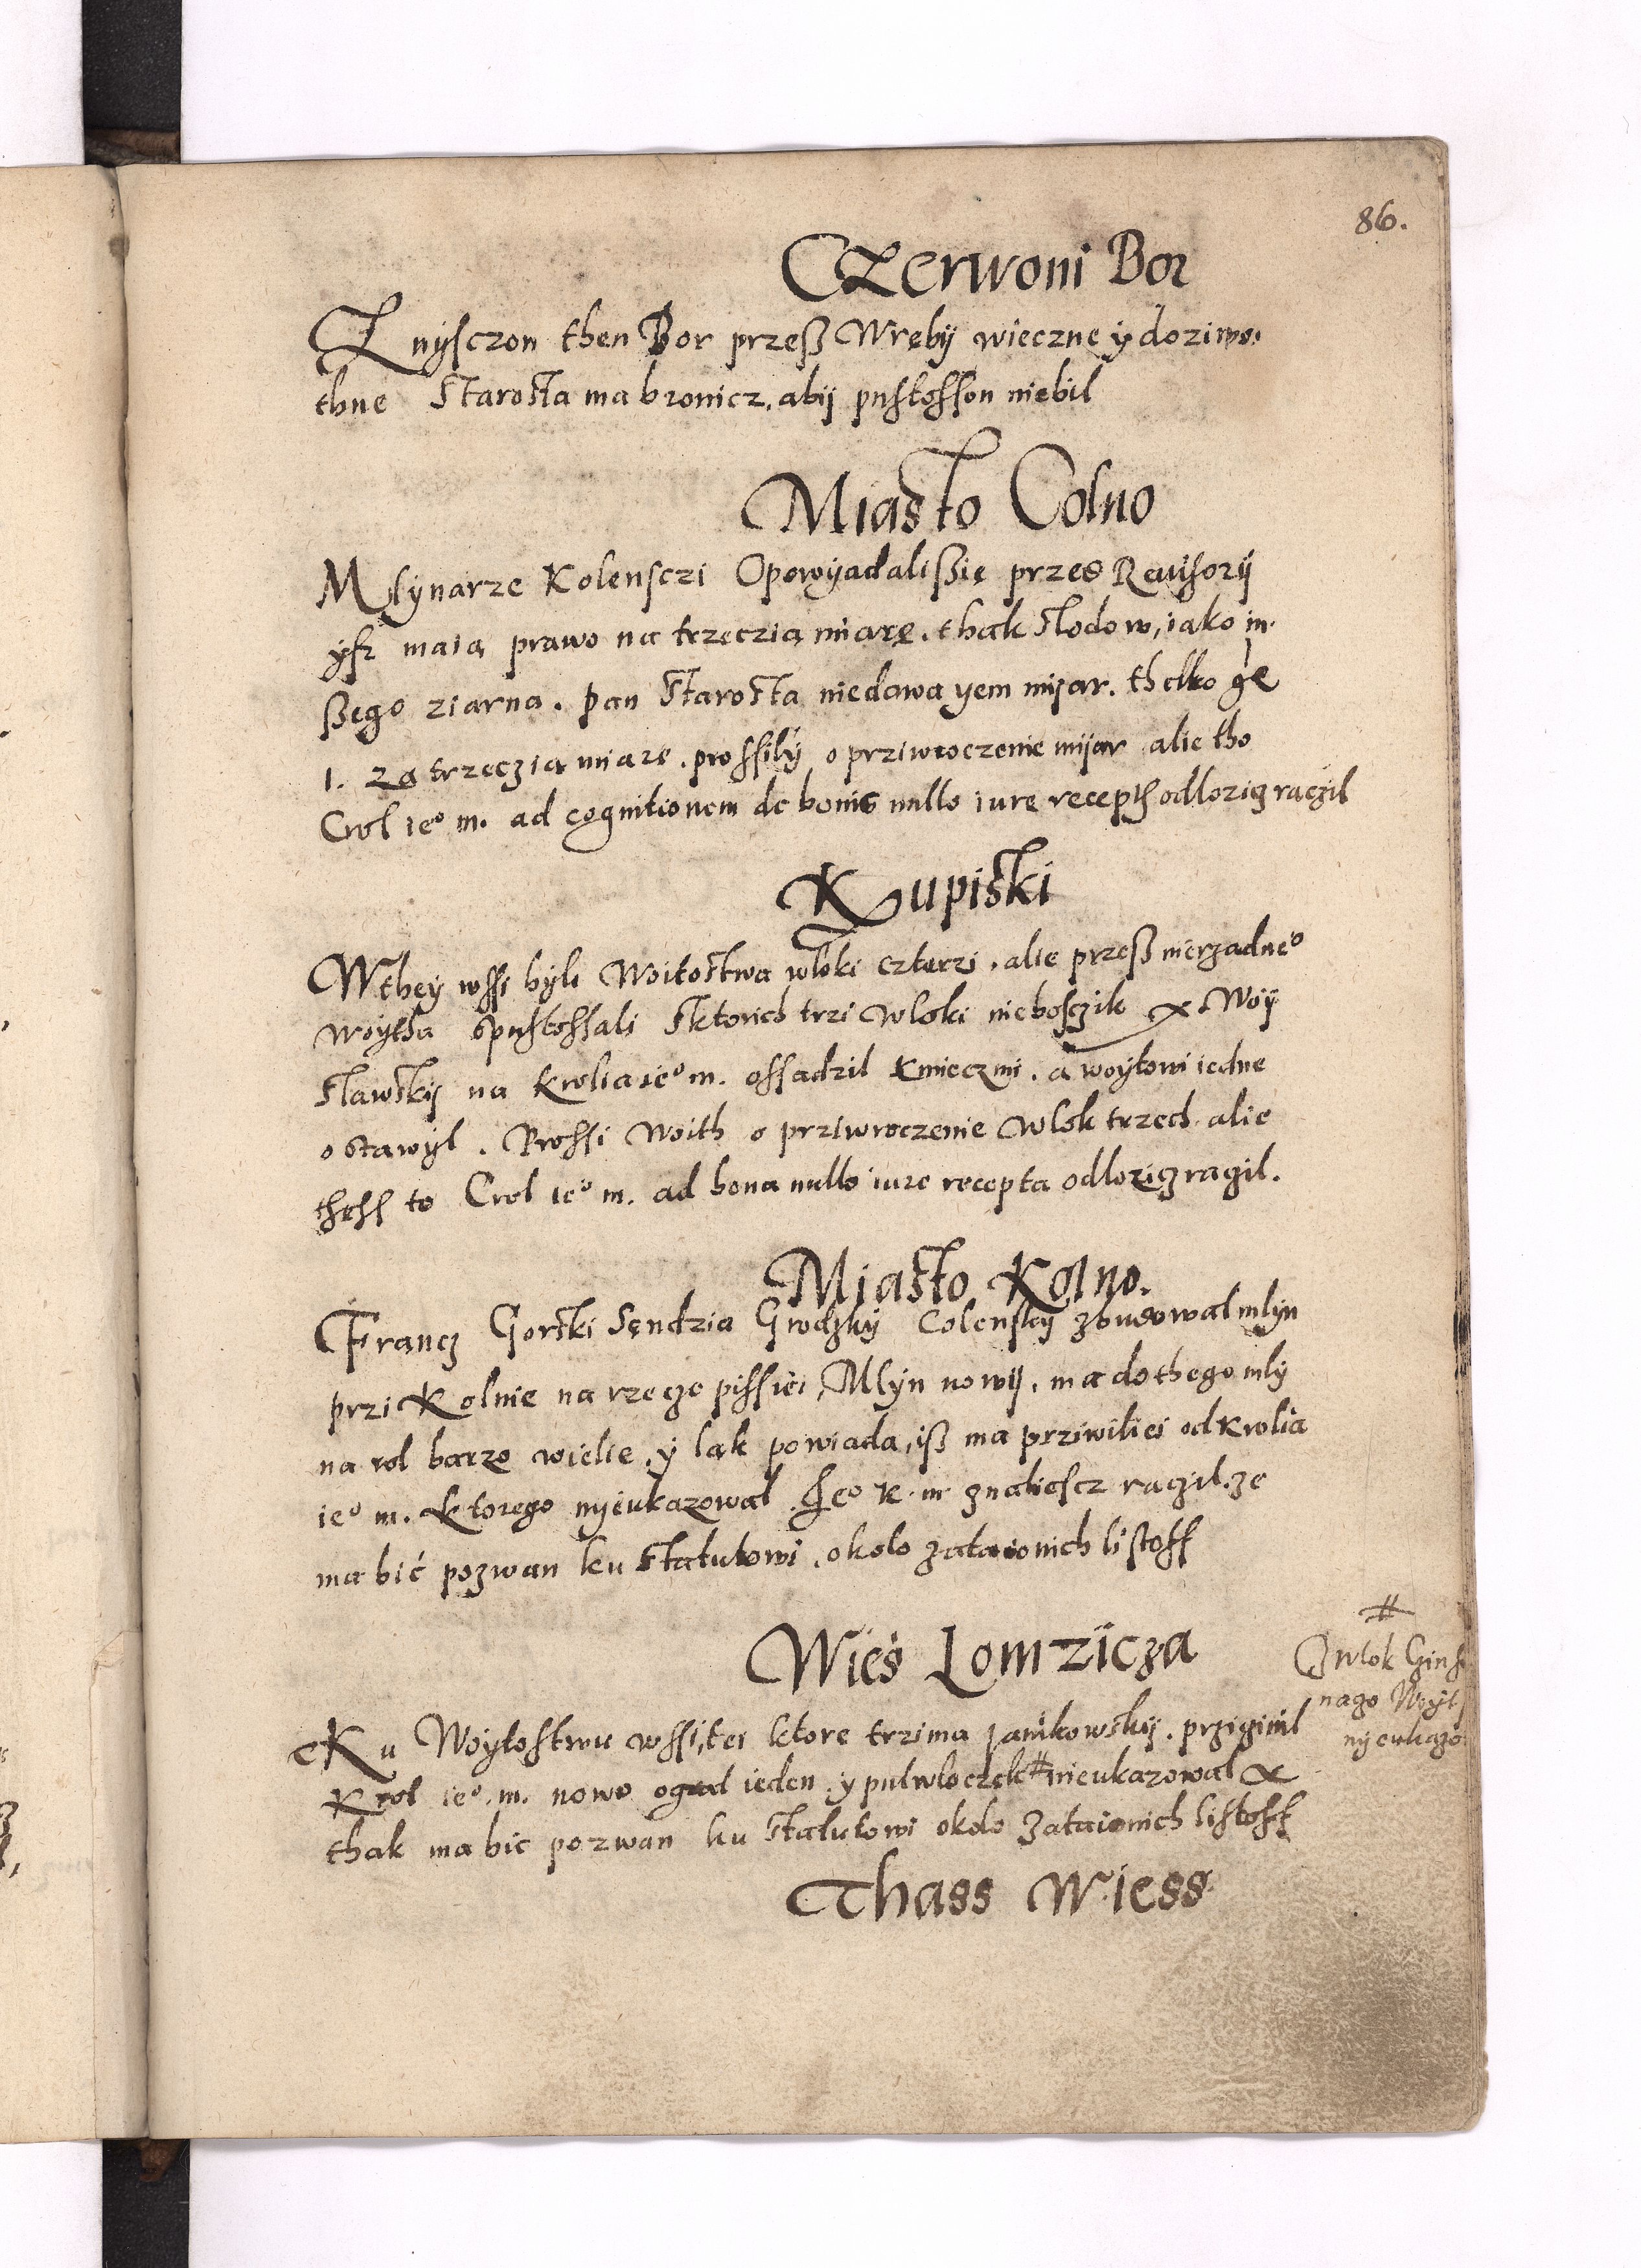 86.
Czerwoni Bor
Znÿsczon then Bor przeß Wrębÿ wieczne ÿ doziwo.
thne Starosta ma bronicz, abÿ pustosson niebil
Miasto Colno
Mlÿnarze Kolensczi Opowÿadalißię przes Revisorÿ
ÿsz maią prawo na trzeczią miarę. thak slodow, iako in.
ßego ziarna. pan Starosta niedawa yem mijar. thelko gr
1. za trzeczią miarę. prossilÿ o przÿwroczenie mijar alie tho
Crol ieº m. ad cognitionem de bonis nullo iure recept odlozicz raczil
Kupiski
Wtheÿ wssi bÿli Woitostwa wloki cztèrzi. alie przeß nierzadneº
woÿtha spustossali Sktorich trzi wloki nieboscziк x Woÿ
slawskÿ na krolia ieº m. ossadzil kmieczmi. a woÿtowi iedne
ostawÿl. Prossi Woith o prziwroczenie wlok trzech alie
thess to Crol ieº m. ad bona nullo iure recepta odlozicz raczil.
Miasto Kolno.
Francz Gorski Sendzia Grodzkÿ Colenskÿ zbudowal mlÿn
przi Kolnie na rzecze pissiei, Mlÿn nowÿ. ma do thego mlÿ
na rol barzo wielie. ÿ ląk powiada, iß ma prziwiliei od krolia
ieº m. ktorego nÿeukazowal. Jeº K. m. znaliescz raczil. ze
ma bić pozwan ku statutowi. okolo zataionich listoff
Wieś Lomzicza
Ku Woÿtostwu wssi, tei ktore trzima Janikowskÿ. prziginil
Krol ieº. m. nowo ogrod ieden. ÿ pulwloczek # nieukazowal x
thak ma bic pozwan ku statutowi okolo zataionich listoff
#
wlok
nago Woÿt
nÿeukazo
Thass Wiess